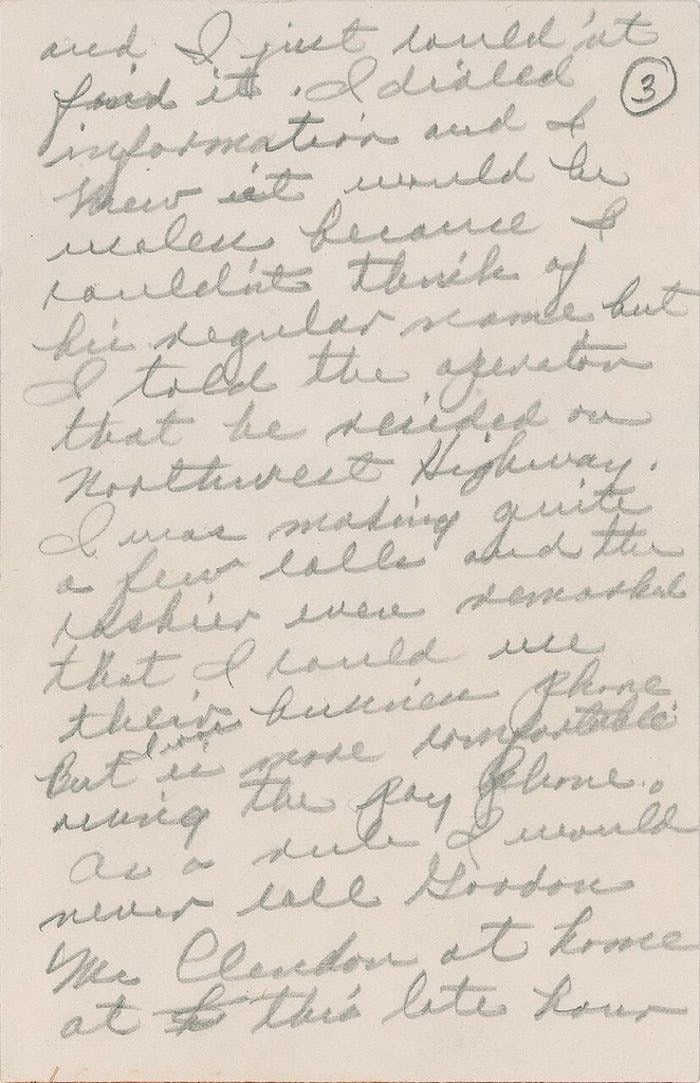 and I just could'nt
find it. I dialed
3
information and I
knew it would be
useless because I
could'nt think of
his regular name but
I told the operator
that he resided on
Northwest Highway.
I was making quite
a few calls and the
cashier even remarked
that I could use
their business phone
But I was more comfortable
using the pay phone.
As a rule I would
never call Gordon
Mc Clendon at home
at this late hour